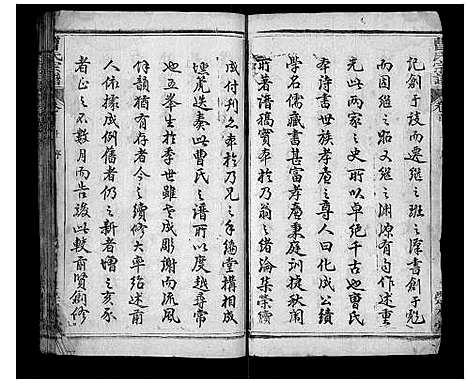 記創于談而遷繼之班之漢書創于彪
而固繼之昭又繼之淵源有自作述重
光此兩家之史所以卓絕千古也曹氏
本詩書世族孝廬之尊人曰化成公績
學名儒藏書甚富孝廬秉庭訓捷秋闈
所著譜稿實本於乃翁之緒論集榮續
成付刊亦本於乃兄之手編堂構相成
篪迭奏此曹氏之譜所以度越尋常
也五峯生於季世雖老成彫謝而流風
餘韻猶有存者今之續修大率紹述前
人依據成例舊者仍之新者增之亥豕
者正之不數月而告竣以較前賢創修
曹氏宗譜
卷首
序